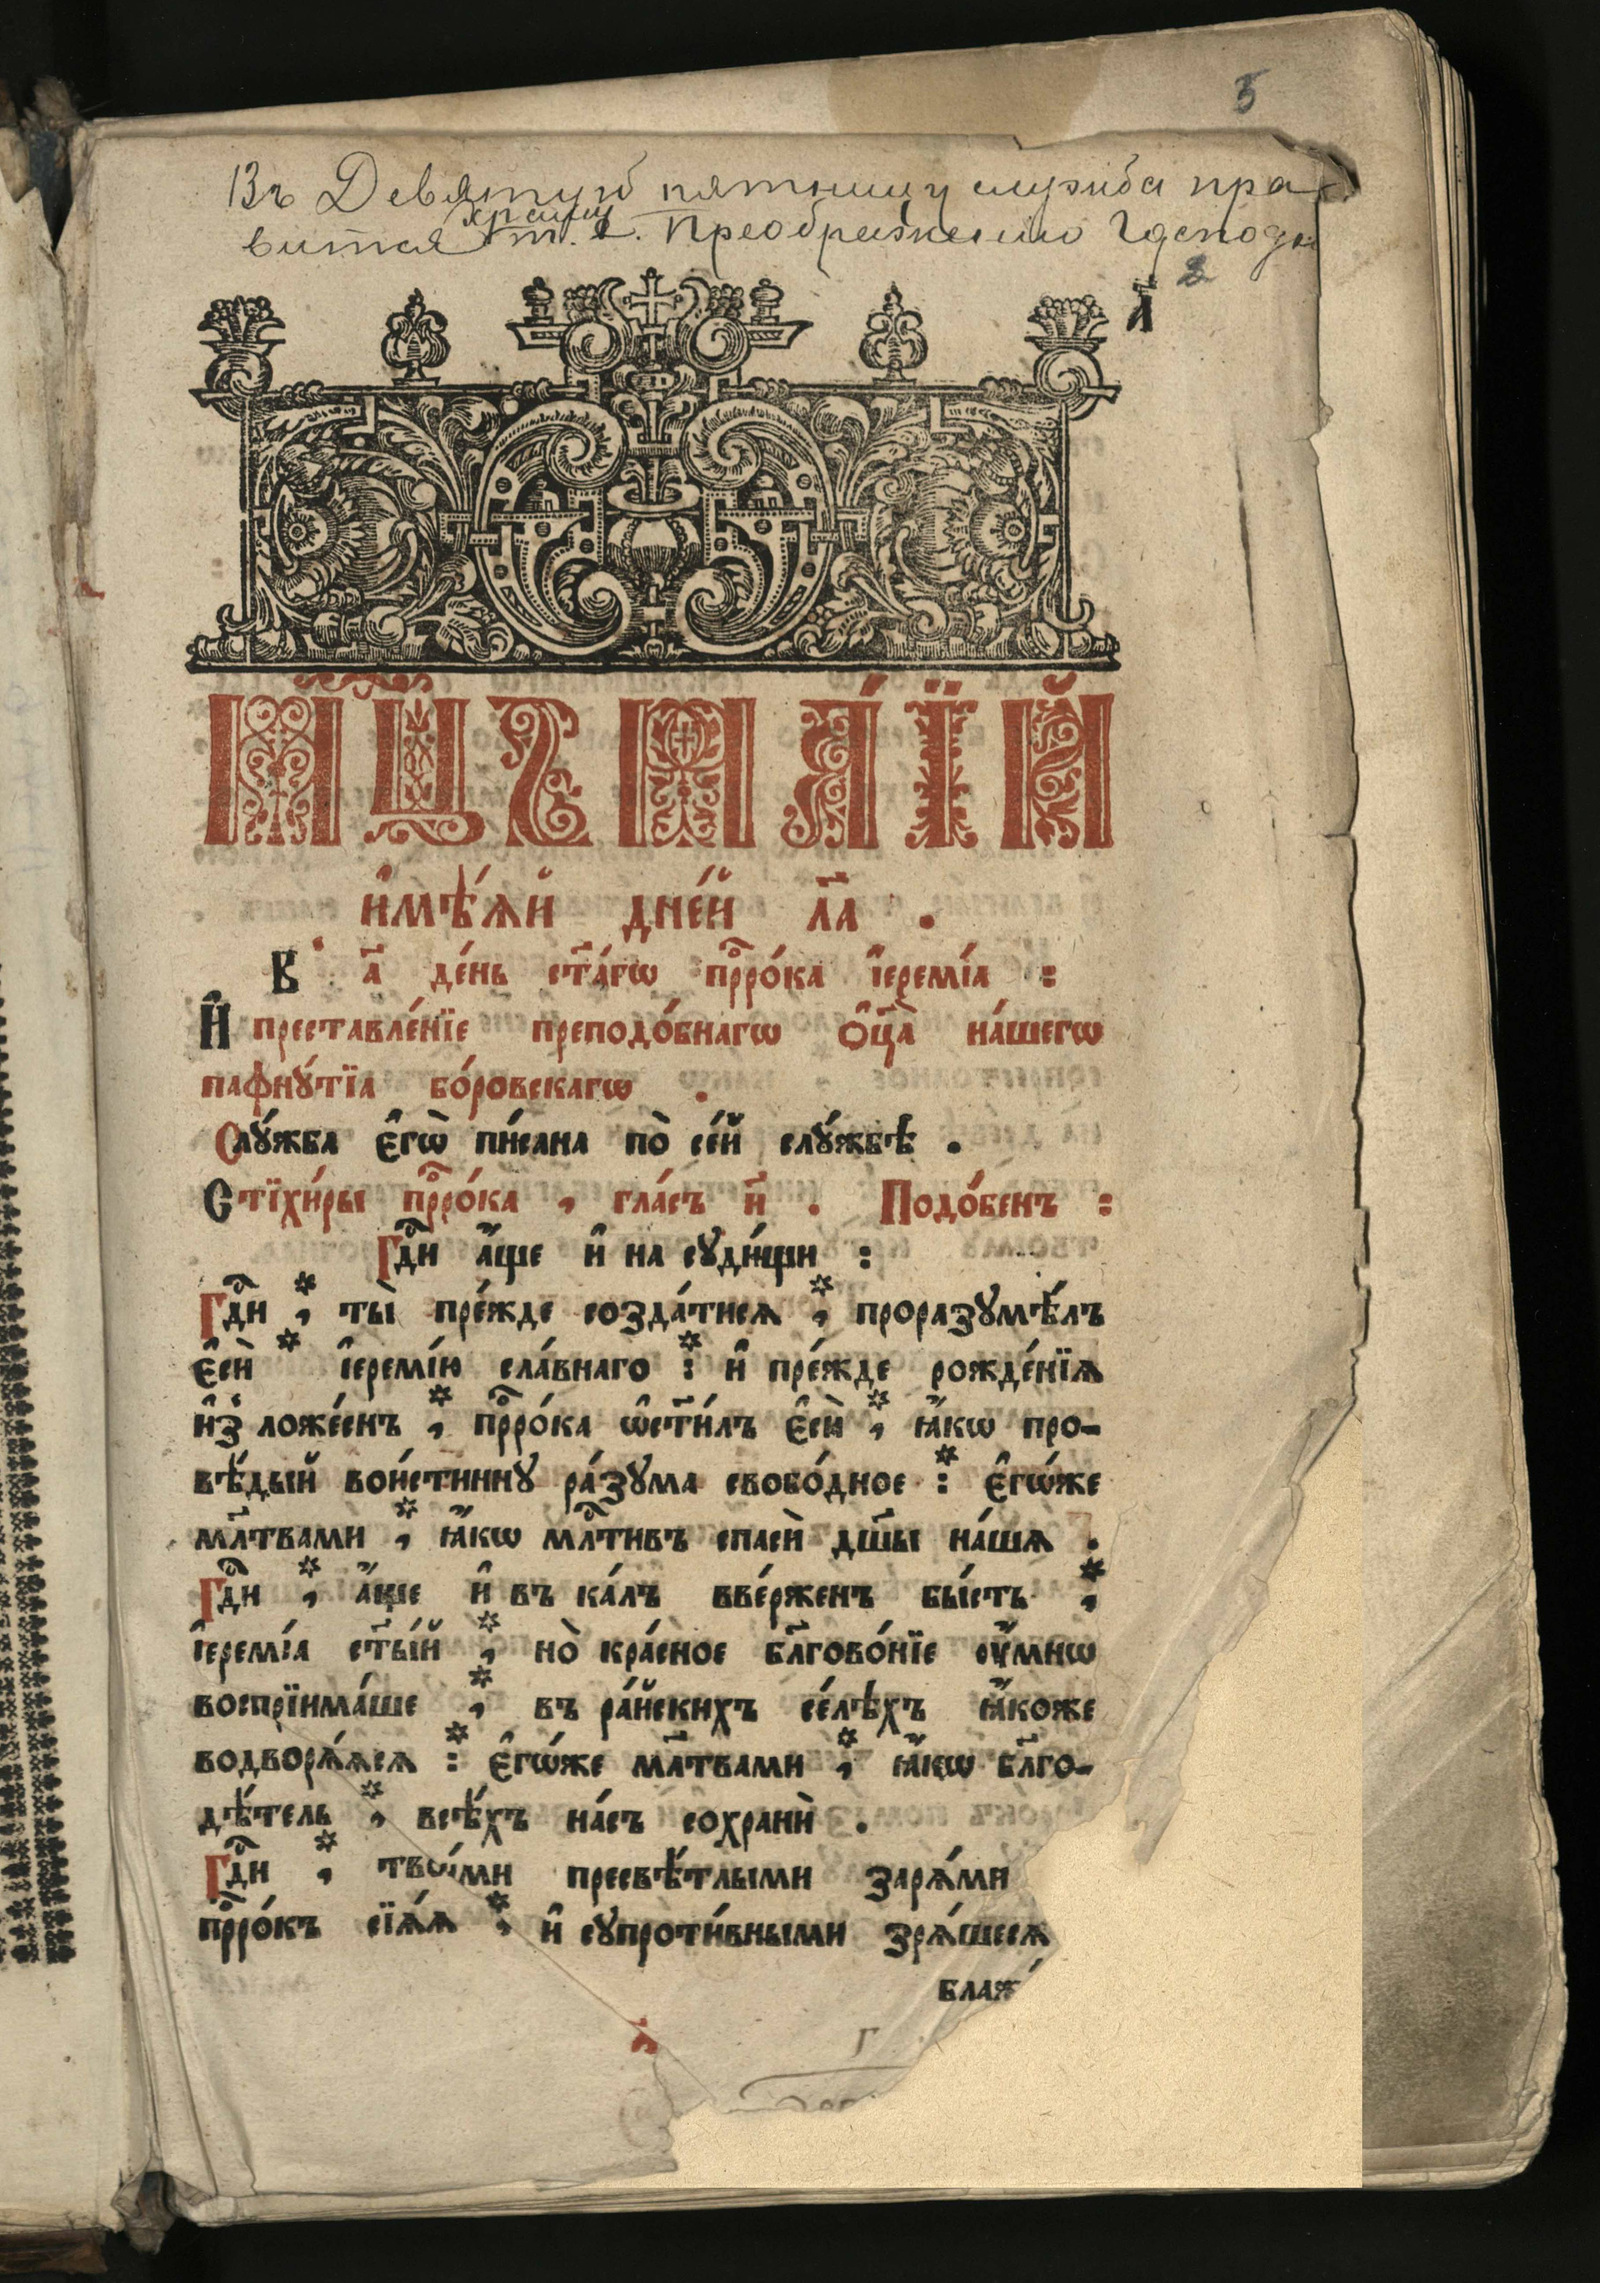 5
Въ Девятую пятницу служба пра-
храму
вится т. е. Преображению Господн
2
а҃
МЦ҃Ъ МА́ЇЙ
и҆мѣ́ѧй дне́й л҃а .
В҆ а҃ де́нь ст҃а́гѡ прⷪ҇ро́ка і҆еремі́а :
И҆ преставле́нїе преподо́бнагѡ ѻ҆ц҃а̀ на́шегѡ
пафнꙋ́тїа бо́ровскагѡ .
Слꙋ́жба є҆гѡ̀ пи́сана по̀ се́й слꙋ́жбѣ .
Стїхи́ры прⷪ҇ро́ка , гла́съ и҃ . Подо́бенъ :
Гдⷭ҇и а҆́ще и҆ на сꙋди́щи :
Гдⷭ҇и * , ты̀ пре́жде созда́тисѧ * , проразꙋмѣ́лъ
є҆сѝ * і҆еремі́ю сла́внаго * : и҆ пре́жде рожде́нїѧ
и҆з̾ ложе́снъ * , прⷪ҇ро́ка ѡ҆ст҃и́лъ є҆сѝ * , ꙗ҆́кѡ про-
вѣ́дый вои́стиннꙋ ра́зꙋма свобо́дное * : є҆гѡ́же
мл҃твами * , ꙗ҆́кѡ млⷭ҇тивъ спасѝ дш҃ы на́шѧ .
Гдⷭ҇и * , а҆́ще и҆ въ ка́лъ вве́рженъ бы́сть * ,
і҆еремі́а ст҃ы́й * , но̀ кра́сное бл҃гово́нїе ᲂу҆́мнѡ
воспрїима́ше * , въ ра́йскихъ се́лѣхъ ꙗ҆́коже
водворѧ́ѧсѧ * : є҆гѡ́же мл҃твами * , ꙗ҆́кѡ бл҃го-
дѣ́тель * , всѣ́хъ на́съ сохранѝ .
Гдⷭ҇и * , твои́ми пресвѣ́тлыми зарѧ́ми
прⷪ҇ро́къ сїѧ́ѧ * , и҆ сꙋпроти́вными зрѧ́шесѧ
блаж